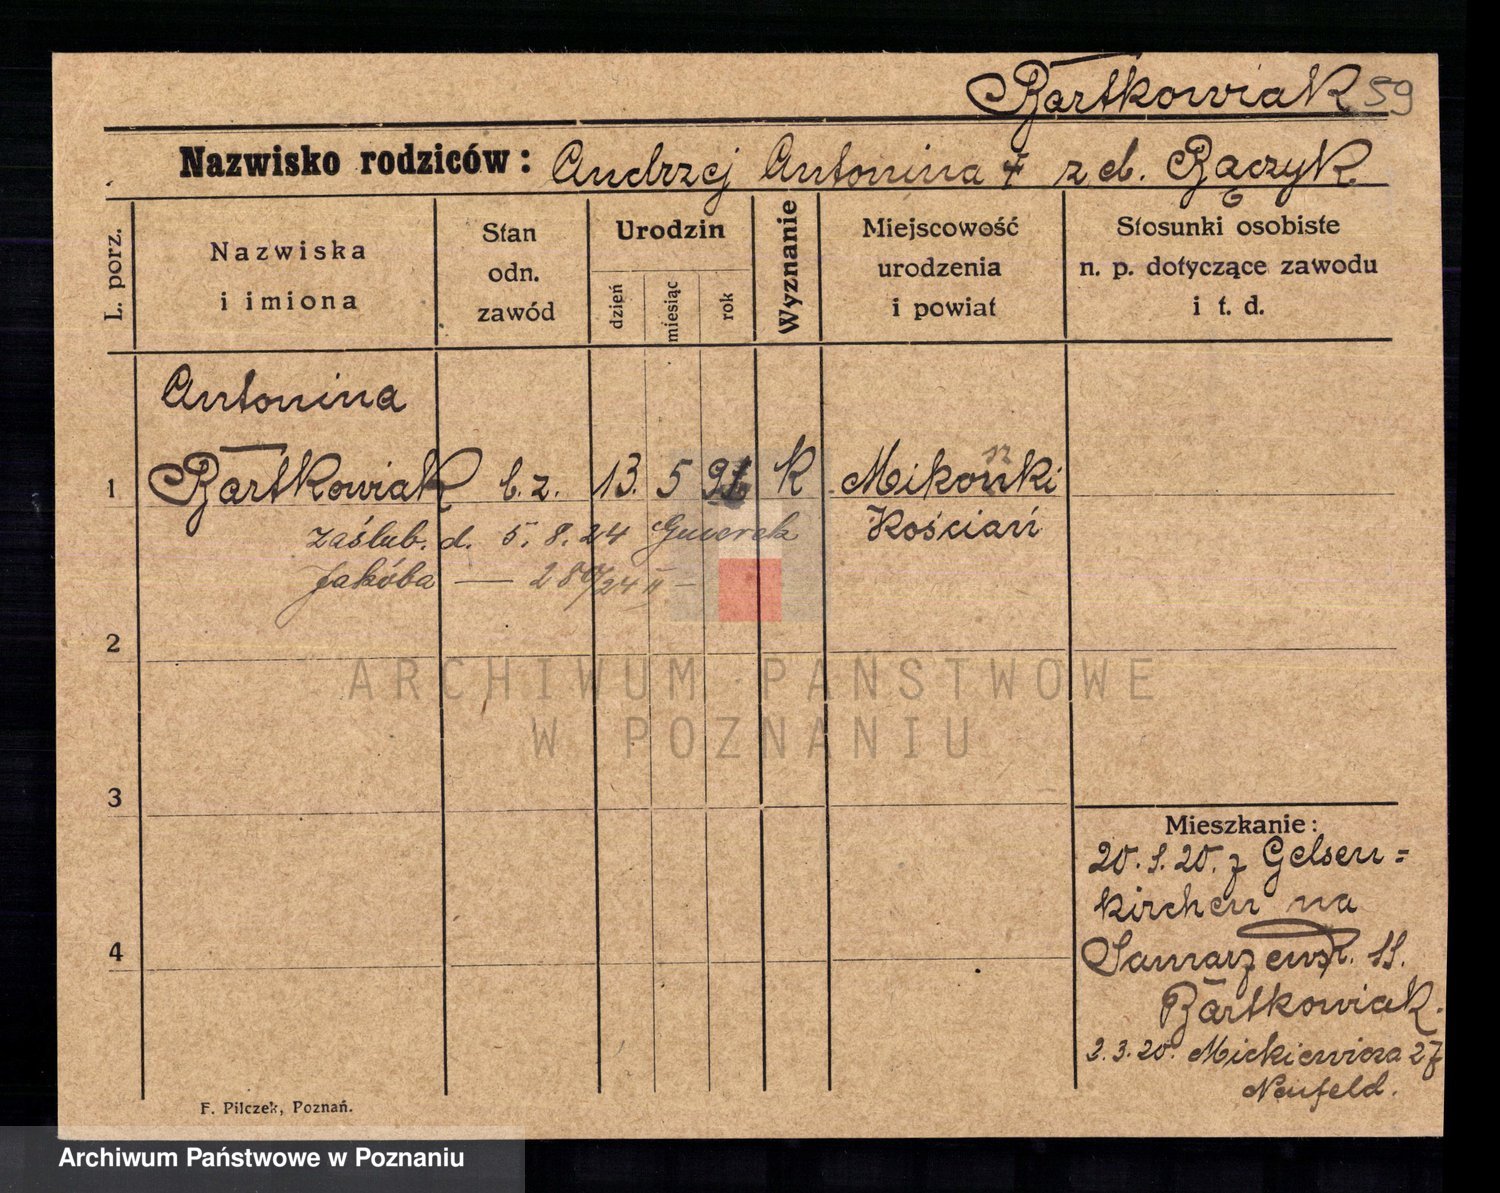 Bartkowiak 59
Nazwisko rodziców: Andrzej Antonina z d. Bączyk
L. porz.
Nazwiska
i imiona
Stan
odn.
zawód
Urodzin
dzień
miesiąc
rok
Wyznanie
Miejscowość
urodzenia
i powiat
Stosunki osobiste
n. p. dotyczące zawodu
i t. d.
Antonina
1 Bartkowiak b. z. 13. 5 k Mikoszki
zaślub. d. 5. 8. 24 Kościan
Jakóba
2
ARCHIWUM PAŃSTWOWE
W POZNANIU
3
4
Mieszkanie:
20. 1. 20. z Gelsen=
kirchen na
Samarzewsk. 11.
Bartkowiak.
2. 3. 20. Mickiewicza 27
Neufeld.
F. Pilczek, Poznań.
Archiwum Państwowe w Poznaniu